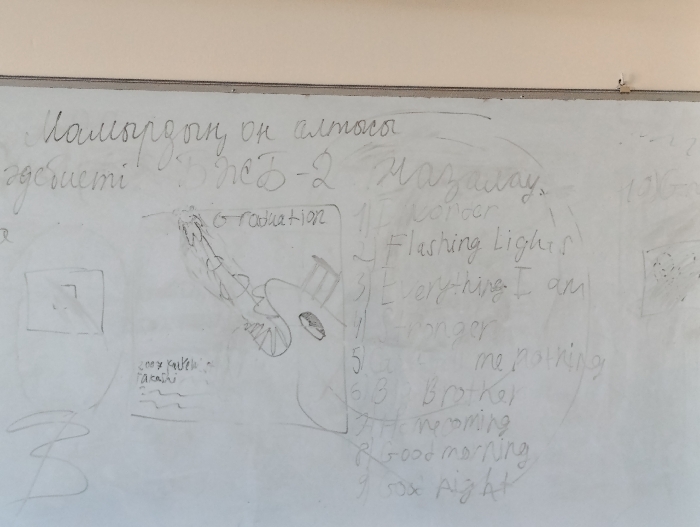 Мамырдың он алтысы
әдебиеті БЖБ-2 Назалау.
Graduation
1) I Wonder
2 Flashing Lights
3) Everything I am
4) Stronger
5) me nothing
6) Big Brother
7) Homecoming
8) Good morning
9)
Takashi